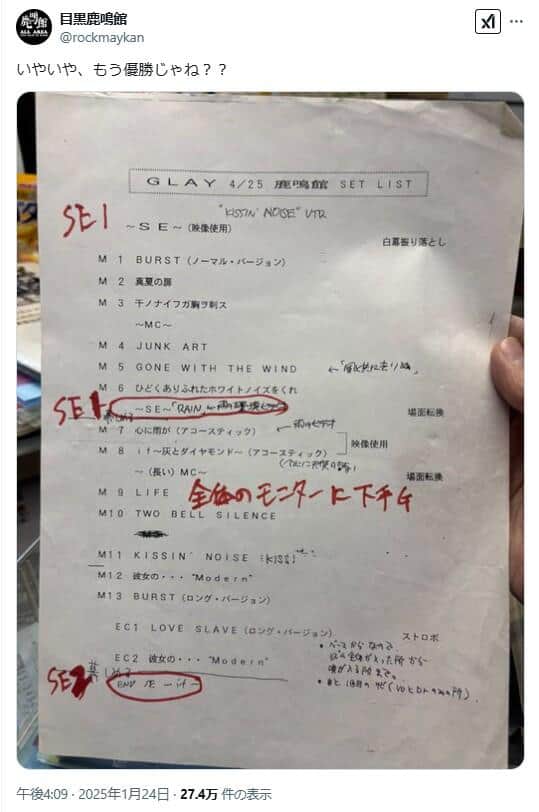 目黒鹿鳴館
@rockmaykan
いやいや、もう優勝じゃね？？
GLAY 4/25 鹿鳴館 SET LIST
"KISSIN' NOISE" VTR
SE1
～SE～(映像使用)
白幕振り落とし
M 1 BURST (ノーマル・バージョン)
M 2 真夏の扉
M 3 千ノナイフガ胸ヲ刺ス
～MC～
M 4 JUNK ART
M 5 GONE WITH THE WIND ←「風と共に去りぬ」
M 6 ひどくありふれたホワイトノイズをくれ
SE1
～SE～「RAIN
場面転換
M 7 心に雨が (アコースティック) ←雨のビデオ
映像使用
M 8 if～灰とダイヤモンド～ (アコースティック)
～(長い) MC～
場面転換
M 9 LIFE 全体のモニターに下手G
M10 TWO BELL SILENCE
M11 KISSIN' NOISE
M12 彼女の・・・"Modern"
M13 BURST (ロング・バージョン)
EC1 LOVE SLAVE (ロング・バージョン)
ストロボ
EC2 彼女の・・・"Modern"
SE2
END SE ー if ー
午後4:09 · 2025年1月24日 · 27.4万 件の表示